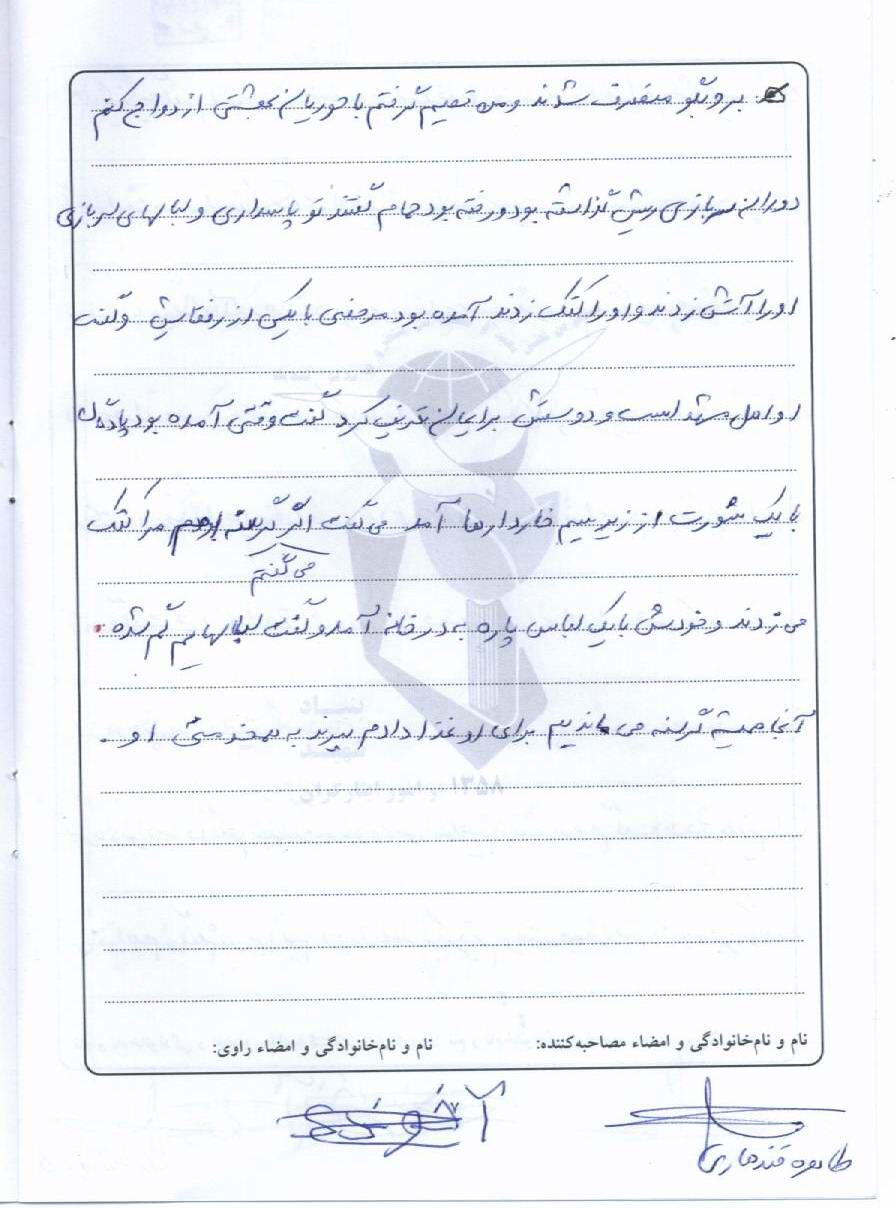 برو بگو منصرف شدند و من تصمیم گرفتم با حوریان بهشتی ازدواج کنم
دوران سربازی ریش گذاشته بود و رفته بود حمام گفتند تو پاسداری و لباسهای سربازی
او را آتش زدند و او را کتک زدند آمده بود مرخصی با یکی از رفقایش و گفت
او اهل مشهد است و دوستش برایمان تعریف کرد گفت وقتی آمده بود پادگان
با یک شورت از زیر سیم خاردارها آمد می گفت اگر گرسنه بودم مرا کتک
می گفتم
می زدند و خودش با یک لباس پاره به در خانه آمد و گفت لباسهایم گم شده.
آنجا همیشه گرسنه می ماندیم برای او غذا دادم ببرند به همخدمتی او.
بنیاد
شهید
۱۳۵۸ و امور ایثارگران
نام و نام‌خانوادگی و امضاء مصاحبه‌کننده: نام و نام‌خانوادگی و امضاء راوی:
طاهره قندهاری